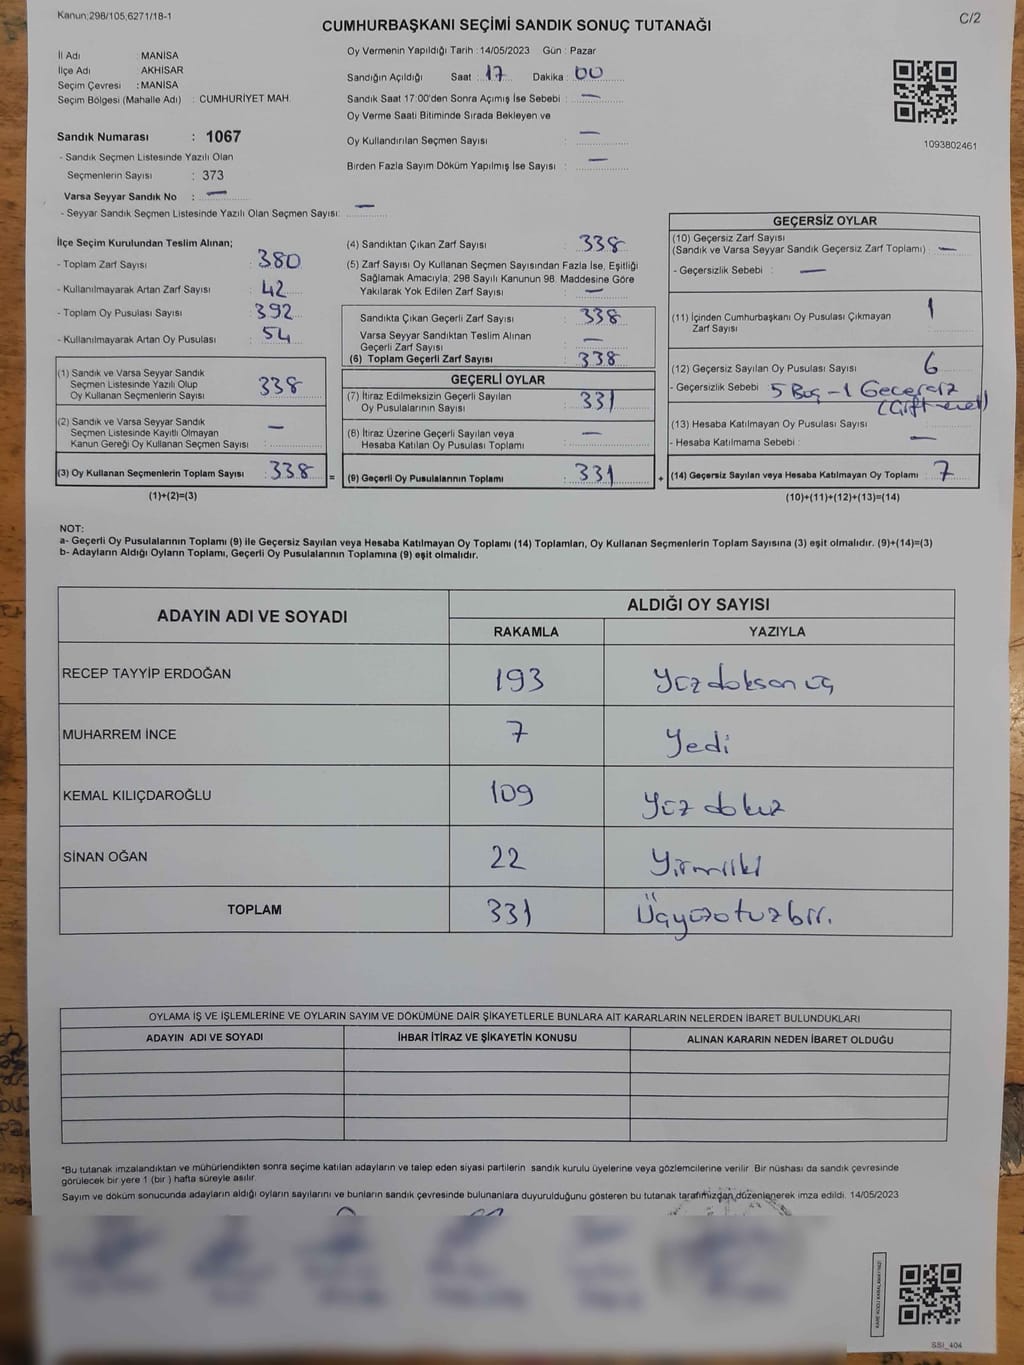 Kanun;298/105,6271/18-1
C/2
CUMHURBAŞKANI SEÇİMİ SANDIK SONUÇ TUTANAĞI
İl Adı : MANİSA
İlçe Adı : AKHİSAR
Seçim Çevresi : MANİSA
Seçim Bölgesi (Mahalle Adı) : CUMHURİYET MAH.
Oy Vermenin Yapıldığı Tarih : 14/05/2023 Gün : Pazar
Sandığın Açıldığı Saat : 17 Dakika : 00
Sandık Saat 17:00'den Sonra Açımış İse Sebebi : —
Oy Verme Saati Bitiminde Sırada Bekleyen ve
Oy Kullandırılan Seçmen Sayısı : —
Birden Fazla Sayım Döküm Yapılmış İse Sayısı : —
1093802461
Sandık Numarası : 1067
- Sandık Seçmen Listesinde Yazılı Olan
Seçmenlerin Sayısı : 373
Varsa Seyyar Sandık No : —
- Seyyar Sandık Seçmen Listesinde Yazılı Olan Seçmen Sayısı: —
İlçe Seçim Kurulundan Teslim Alınan;
- Toplam Zarf Sayısı : 380
- Kullanılmayarak Artan Zarf Sayısı : 42
- Toplam Oy Pusulası Sayısı : 392
- Kullanılmayarak Artan Oy Pusulası : 54
(1) Sandık ve Varsa Seyyar Sandık
Seçmen Listesinde Yazılı Olup
Oy Kullanan Seçmenlerin Sayısı 338
(2) Sandık ve Varsa Seyyar Sandık
Seçmen Listesinde Kayıtlı Olmayan
Kanun Gereği Oy Kullanan Seçmen Sayısı : —
(3) Oy Kullanan Seçmenlerin Toplam Sayısı : 338 =
(1)+(2)=(3)
(4) Sandıktan Çıkan Zarf Sayısı : 338
(5) Zarf Sayısı Oy Kullanan Seçmen Sayısından Fazla İse, Eşitliği
Sağlamak Amacıyla; 298 Sayılı Kanunun 98. Maddesine Göre
Yakılarak Yok Edilen Zarf Sayısı : —
Sandıkta Çıkan Geçerli Zarf Sayısı : 338
Varsa Seyyar Sandıktan Teslim Alınan
Geçerli Zarf Sayısı : —
(6) Toplam Geçerli Zarf Sayısı : 338
GEÇERLİ OYLAR
(7) İtiraz Edilmeksizin Geçerli Sayılan
Oy Pusulalarının Sayısı : 331
(8) İtiraz Üzerine Geçerli Sayılan veya
Hesaba Katılan Oy Pusulası Toplamı : —
(9) Geçerli Oy Pusulalarının Toplamı : 331 +
GEÇERSİZ OYLAR
(10) Geçersiz Zarf Sayısı
(Sandık ve Varsa Seyyar Sandık Geçersiz Zarf Toplamı) : —
- Geçersizlik Sebebi : —
(11) İçinden Cumhurbaşkanı Oy Pusulası Çıkmayan
Zarf Sayısı : 1
(12) Geçersiz Sayılan Oy Pusulası Sayısı : 6
- Geçersizlik Sebebi : 5 Boş - 1 Geçersiz
(Çift evet)
(13) Hesaba Katılmayan Oy Pusulası Sayısı :
- Hesaba Katılmama Sebebi : —
(14) Geçersiz Sayılan veya Hesaba Katılmayan Oy Toplamı : 7
(10)+(11)+(12)+(13)=(14)
NOT:
a- Geçerli Oy Pusulalarının Toplamı (9) ile Geçersiz Sayılan veya Hesaba Katılmayan Oy Toplamı (14) Toplamları, Oy Kullanan Seçmenlerin Toplam Sayısına (3) eşit olmalıdır. (9)+(14)=(3)
b- Adayların Aldığı Oyların Toplamı, Geçerli Oy Pusulalarının Toplamına (9) eşit olmalıdır.
ADAYIN ADI VE SOYADI ALDIĞI OY SAYISI
RAKAMLA YAZIYLA
RECEP TAYYİP ERDOĞAN 193 Yüz doksan üç
MUHARREM İNCE 7 Yedi
KEMAL KILIÇDAROĞLU 109 Yüz dokuz
SİNAN OĞAN 22 Yirmiiki
TOPLAM 331 Üçyüzotuzbir.
OYLAMA İŞ VE İŞLEMLERİNE VE OYLARIN SAYIM VE DÖKÜMÜNE DAİR ŞİKAYETLERLE BUNLARA AİT KARARLARIN NELERDEN İBARET BULUNDUKLARI
ADAYIN ADI VE SOYADI İHBAR İTİRAZ VE ŞİKAYETİN KONUSU ALINAN KARARIN NEDEN İBARET OLDUĞU
*Bu tutanak imzalandıktan ve mühürlendikten sonra seçime katılan adayların ve talep eden siyasi partilerin sandık kurulu üyelerine veya gözlemcilerine verilir. Bir nüshası da sandık çevresinde
görülecek bir yere 1 (bir ) hafta süreyle asılır.
Sayım ve döküm sonucunda adayların aldığı oyların sayılarını ve bunların sandık çevresinde bulunanlara duyurulduğunu gösteren bu tutanak tarafımızdan düzenlenerek imza edildi. 14/05/2023
KARE KODU KARALAMAYINIZ!
SSI_404